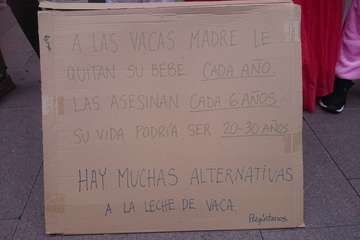 A LAS VACAS MADRE LE
QUITAN SU BEBE CADA AÑO.
LAS ASESINAN CADA 6 AÑOS
SU VIDA PODRÍA SER 20-30 AÑOS
HAY MUCHAS ALTERNATIVAS
A LA LECHE DE VACA.
Pregúntanos